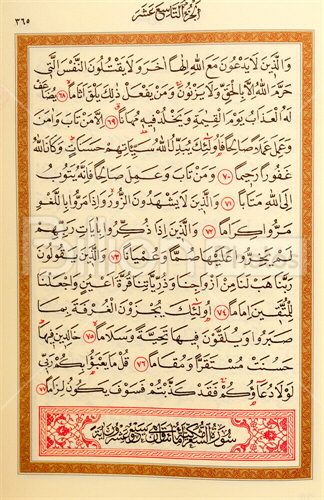 الجزء التاسع عشر
٣٦٥
وَالَّذِينَ لَا يَدْعُونَ مَعَ اللهِ إِلٰهًا اٰخَرَ وَلَا يَقْتُلُونَ النَّفْسَ الَّتِي
حَرَّمَ اللهُ إِلَّا بِالْحَقِّ وَلَا يَزْنُونَ وَمَنْ يَفْعَلْ ذٰلِكَ يَلْقَ اَثَامًا ٦٨ يُضَاعَفْ
لَهُ الْعَذَابُ يَوْمَ الْقِيٰمَةِ وَيَخْلُدْ فِيهِ مُهَانًا ٦٩ اِلَّا مَنْ تَابَ وَاٰمَنَ
وَعَمِلَ عَمَلًا صَالِحًا فَاُولٰئِكَ يُبَدِّلُ اللهُ سَيِّئَاتِهِمْ حَسَنَاتٍ وَكَانَ اللهُ
غَفُورًا رَحِيمًا ٧٠ وَمَنْ تَابَ وَعَمِلَ صَالِحًا فَاِنَّهُ يَتُوبُ
اِلَى اللهِ مَتَابًا ٧١ وَالَّذِينَ لَا يَشْهَدُونَ الزُّورَ وَاِذَا مَرُّوا بِاللَّغْوِ
مَرُّوا كِرَامًا ٧٢ وَالَّذِينَ اِذَا ذُكِّرُوا بِاٰيَاتِ رَبِّهِمْ
لَمْ يَخِرُّوا عَلَيْهَا صُمًّا وَعُمْيَانًا ٧٣ وَالَّذِينَ يَقُولُونَ
رَبَّنَا هَبْ لَنَا مِنْ اَزْوَاجِنَا وَذُرِّيَّاتِنَا قُرَّةَ اَعْيُنٍ وَاجْعَلْنَا
لِلْمُتَّقِينَ اِمَامًا ٧٤ اُولٰئِكَ يُجْزَوْنَ الْغُرْفَةَ بِمَا
صَبَرُوا وَيُلَقَّوْنَ فِيهَا تَحِيَّةً وَسَلَامًا ٧٥ خَالِدِينَ فِيهَا
حَسُنَتْ مُسْتَقَرًّا وَمُقَامًا ٧٦ قُلْ مَا يَعْبَؤُا بِكُمْ رَبِّي
لَوْلَا دُعَاؤُكُمْ فَقَدْ كَذَّبْتُمْ فَسَوْفَ يَكُونُ لِزَامًا ٧٧
سورة الشعراء مائتان وسبع وعشرون اية